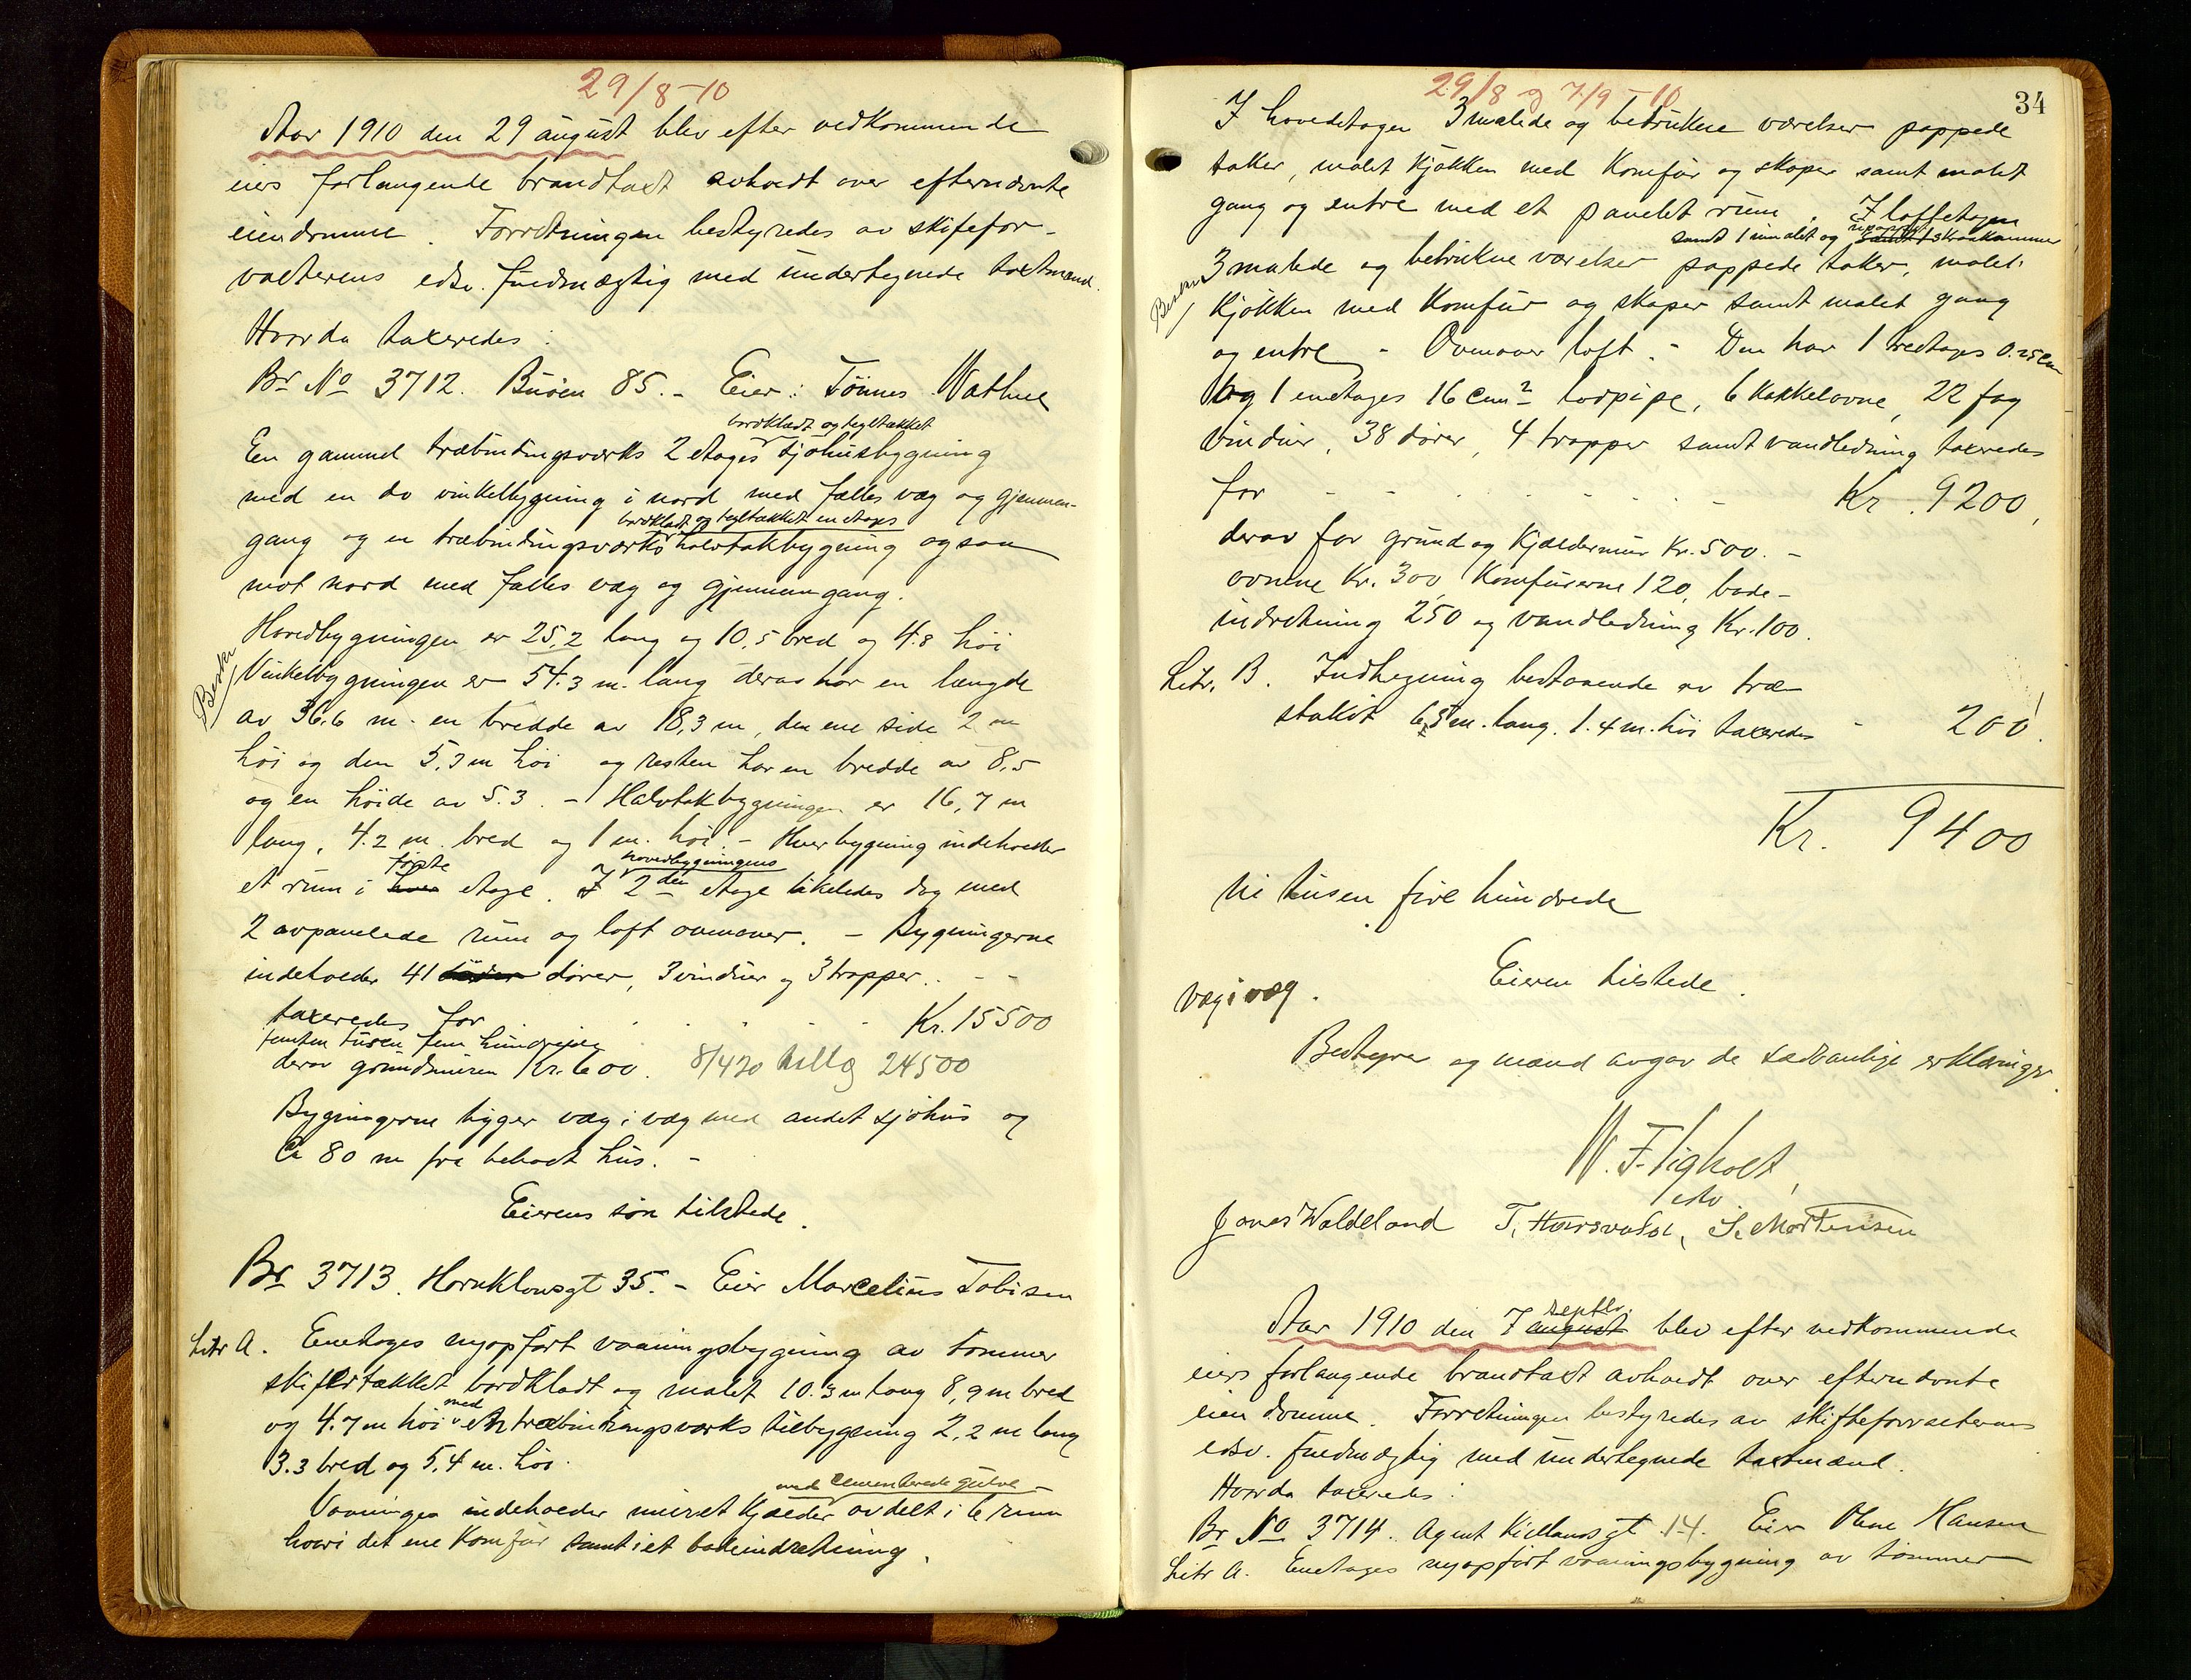 29/8-10
Aar 1910 den 29 august blev efter vedkommende
eiers forlangende brandtaxt avholdt over efternævnte
eiendomme. Forretningen bestyredes av skiftefor-
valterens edsv. fuldmægtig med undertegnede taxtmænd.
Hvorda taxeredes:
Br No 3712. Buöen 85. - Eier: Tönnes Wathne
bordklædt og tegltækket
En gammel træbindingsverks 2 etages sjöhusbygning
med en do vinkelbygning i nord med fælles væg og gjennem-
bordklædt og tegltækket en etages
gang og en træbindingsverks halvtakbygning ogsaa
mot nord med fælles væg og gjennemgang.
Hovedbygningen er 25,2 lang og 10,5 bred og 4.8 höi
Beskr
Vinkelbygningen er 54.3 m. lang derav har en længde
av 36.6 m. en bredde av 18,3 m, den ene side 2 m
höi og den 5,3 m höi og resten har en bredde av 8,5
og en höide av 5.3. - Halvtakbygningen er 16,7 m
lang, 4.2 m. bred og 1 m. höi. - Hver bygning indeholder
förste og hovedbygningens
et rum i etage. I 2den etage likeledes dog med
2 avpanelede rum og loft ovenover. - Bygningerne
indeholder 41 dörer, 3 vinduer og 3 trapper. - -
taxeredes for Kr. 15500
femten tusen fem hundrede
derav grundmuren Kr. 600. 8/4 20 tillæg 24500
Bygningerne ligger væg i væg med andet sjöhus og
Ca 80 m fra beboet hus. -
Eierens sön tilstede.
Br 3713. Hornklovsgt 35. - Eier Marcelius Tobisen
Litr A. Enetages nyopfört vaaningsbygning av tömmer
skifertækket bordklædt og malet 10.3 m lang 8,9 m bred
med
og 4.7 m höi en træbindingsverks tilbygning 2,2 m lang
3.3 bred og 5,4 m. höi.
med cementerede gulve
Vaaningen indeholder muret kjælder avdelt i 6 rum
hvori det ene Komfur samt i et badeindretning.
29/8 og 7/9-10
34
I hovedetagen 3 malede og betrukne værelser pappede
taker, malet kjökken med Komfur og skaper samt malet
gang og entre med et panelet rum. I loftetagen
samt 1 umalet og 1 skraakammer
3 malede og betrukne værelser pappede taker, malet
Beskr
kjökken med Komfur og skaper samt malet gang
og entre - Ovenover loft. - Den har 1 tredtages 0.25 cm
og 1 enetages 16 cm² rorpipe, 6 kakkelovne, 22 fag
vinduer, 38 dörer, 4 trapper samt vandledning taxeredes
for - - - Kr. 9200,
derav for grund og kjældermur Kr. 500. -
ovnene Kr. 300, Komfurerne 120, bade-
indretning 250 og vandledning Kr. 100.
Litr. B. Indhegning bestaaende av træ-
stakit 65 m. lang. 1.4 m. höi taxeredes - 200.
Kr. 9400
ni tusen fire hundrede
Eieren tilstede.
Væg i væg.
Bestyrer og mænd avgav de sædvanlige erklæringer.
W. F. Figholt,
edsv
Jonas Waldeland T. Haarsvold, S. Mortensen
septbr.
Aar 1910 den 7 august blev efter vedkommende
eiers forlangende brandtaxt avholdt over efternævnte
eiendomme. Forretningen bestyredes av skifteforvalterens
edsv. fuldmægtig med undertegnede taxtmænd.
Hvorda taxeredes:
Br No 3714. Agent Kiellandsgt 14. Eier Olene Hansen
Litr A. Enetages nyopfört vaaningsbygning av tömmer